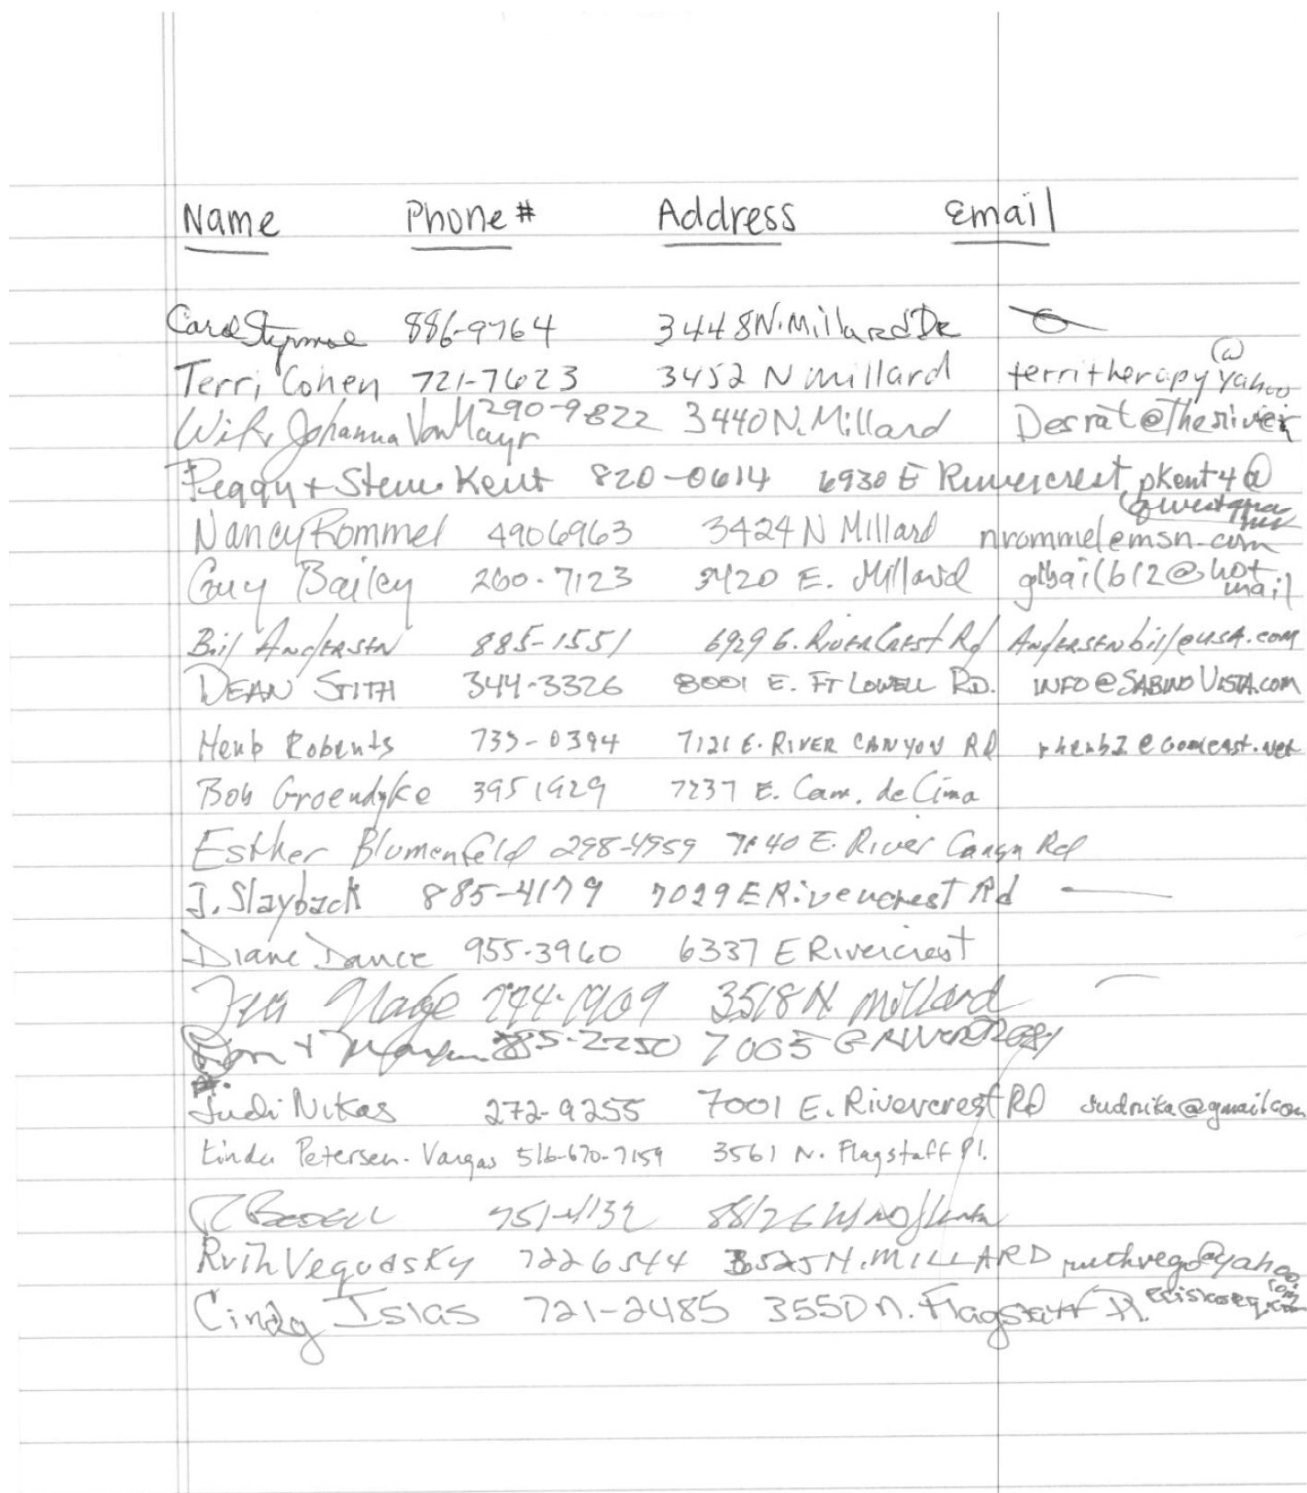 Name Phone # Address Email
Carol 886-9764 3448 N. Millard Dr
Terri Cohen 721-7623 3452 N Millard territherapy@yahoo
Johanna Von Mayr 290-9822 3440 N. Millard Desrat@theriver
Peggy + Steve Kent 820-0614 6930 E Rivercrest pkent4@
Nancy Rommel 4906963 3424 N Millard nrommel@msn.com
Guy Bailey 260-7123 3420 E. Millard @hotmail
Bill Andersen 885-1551 6929 E. RiverCrest Rd Andersenbill@usa.com
DEAN STITH 344-3326 8001 E. FT LOWELL RD. INFO@SABINOVISTA.COM
Herb Roberts 735-0394 7121 E. RIVER CANYON RD rherb2@comcast.net
Bob Groendyke 3951929 7237 E. Cam. de Cima
Esther Blumenfeld 298-4959 7140 E. River Canyn Rd
J. Slayback 885-4179 7029 E Rivercrest Rd
Diane Dance 955-3960 6337 E Rivercrest
3518 N Millard
885-2250 7005 E
Judi Nikas 272-9255 7001 E. Rivercrest Rd judnika@gmail.com
Linda Petersen-Vargas 516-670-7159 3561 N. Flagstaff Pl.
751-4132
Ruth Vegodsky 7226544 3525 N. MILLARD ruthvego@yahoo.com
Cindy Islas 721-2485 3550 N. Flagstaff Pl.